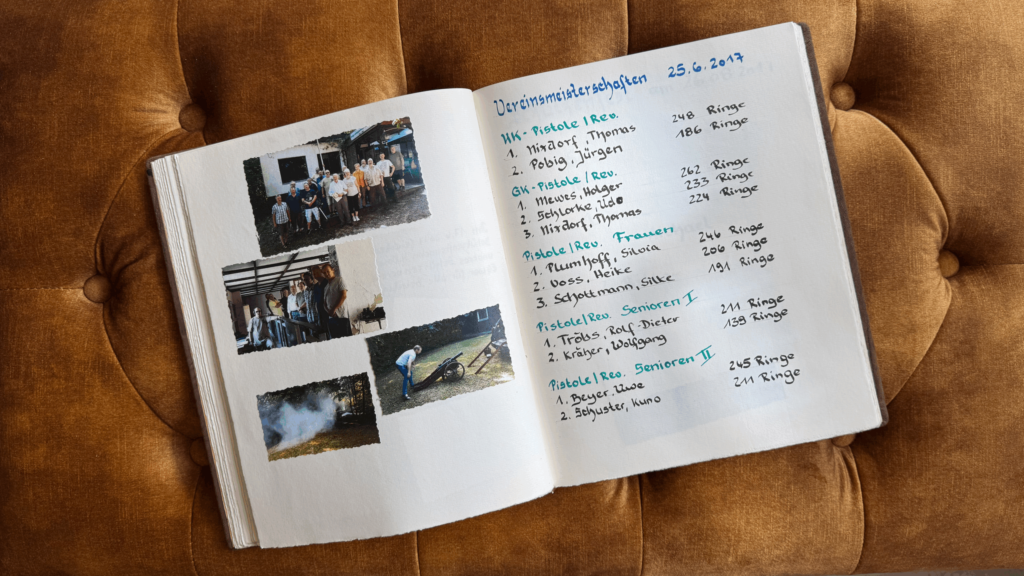 Vereinsmeisterschaften 25.6.2017
KK-Pistole/Rev.
1. Nixdorf, Thomas 248 Ringe
2. Pobig, Jürgen 186 Ringe
GK-Pistole/Rev.
1. Mewes, Holger 262 Ringe
2. Schlorke, Udo 233 Ringe
3. Nixdorf, Thomas 224 Ringe
Pistole/Rev. Frauen
1. Plumhoff, Silvia 246 Ringe
2. Voss, Heike 206 Ringe
3. Schottmann, Silke 191 Ringe
Pistole/Rev. Senioren I
1. Tröbs, Rolf-Dieter 211 Ringe
2. Kratzer, Wolfgang 139 Ringe
Pistole/Rev. Senioren II
1. Beyer, Uwe 245 Ringe
2. Schuster, Kuno 211 Ringe